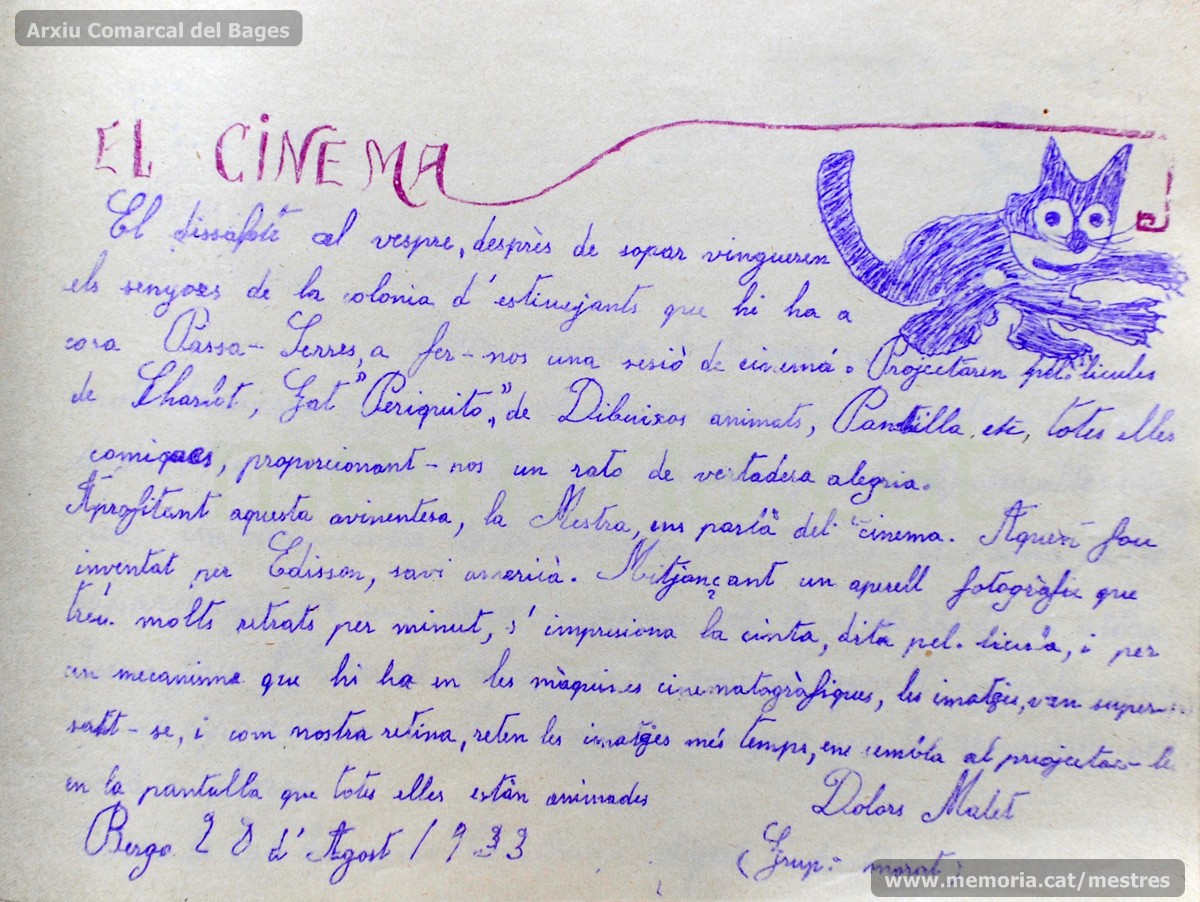 Arxiu Comarcal del Bages
EL CINEMA
El dissabte al vespre, desprès de sopar vingueren
els senyors de la colonia d'estiuejants que hi ha a
casa Passa-Serres, a fer-nos una sesiò de cinemà. Projectaren pel·licules
de Tharlot, Gat "Periquito", de Dibuixos animats, Pandilla, etc, totes elles
comiques, proporcionant-nos un rato de vertadera alegria.
Aprofitant aquesta avinentesa, la Mestra, ens parlà del cinema. Aquest fou
inventat per Edisson, savi americà. Mitjançant un aperell fotogràfic que
treu molts retrats per minut, s'impresiona la cinta, dita pel·licula, i per
un mecanisme que hi ha en les màquines cinematogràfiques, les imatges, van super-
sant-se, i com nostra retina, reten les imatges més temps, ens sembla al projectar-le
en la pantalla que totes elles estàn animades
Dolors Malet
Berga 28 d'Agost 1933
(Grup: morat)
www.memoria.cat/mestres